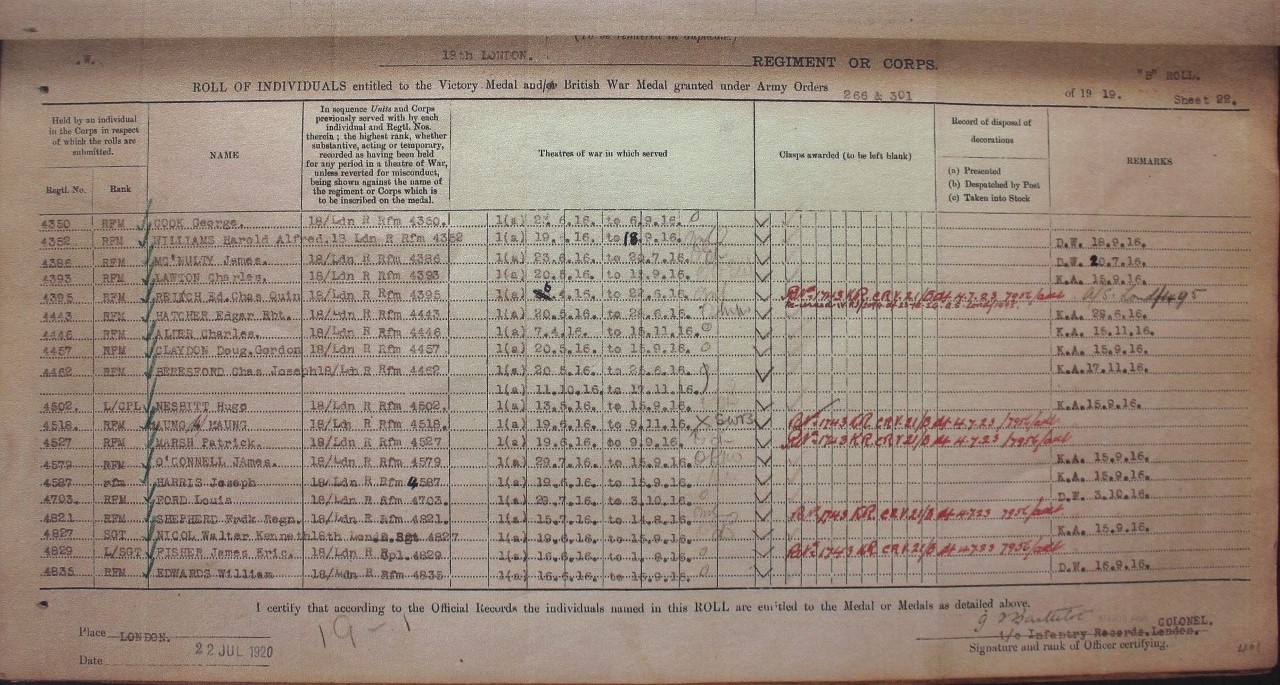 .W. 18th LONDON. REGIMENT OR CORPS.
(To be rendered in duplicate.)
"B" ROLL.
ROLL OF INDIVIDUALS entitled to the Victory Medal and/or British War Medal granted under Army Orders 266 & 301 of 19 19. Sheet 22.
Held by an individual in the Corps in respect of which the rolls are submitted.
Regtl. No.
Rank
NAME
In sequence Units and Corps previously served with by each individual and Regtl. Nos. therein; the highest rank, whether substantive, acting or temporary, recorded as having been held for any period in a theatre of War, unless reverted for misconduct, being shown against the name of the regiment or Corps which is to be inscribed on the medal.
Theatres of war in which served
Clasps awarded (to be left blank)
Record of disposal of decorations
(a) Presented
(b) Despatched by Post
(c) Taken into Stock
REMARKS
4350 RFM COOK George. 18/Ldn R Rfm 4350. 1(a) 6.16. to 6.9.16.
4352 RFM WILLIAMS Harold Alfred. 18 Ldn R Rfm 4352 1(a) 19. .16. to 18.9.16. D.W. 18.9.16.
4386 RFM MC'NULTY James. 18/Ldn R Rfm 4386 1(a) 23.6.16. to 20.7.16. D.W. 20.7.16.
4393 RFM LAWTON Charles. 18/Ldn R Rfm 4393 1(a) 20.5.16. to 15.9.16. K.A. 15.9.16.
4395 RFM Ed.Chas Quin 18/Ldn R Rfm 4395 1(a) 6.4.16. to 22.6.16. 1743 KR CRV 21/B dt 4.7.23 7956/adt
4443 RFM HATCHER Edgar Rbt. 18/Ldn R Rfm 4443 1(a) 20.5.16. to 6.16. K.A. 29.6.16.
4446 RFM ALMER Charles. 18/Ldn R Rfm 4446 1(a) 7.4.16. to 15.11.16. K.A. 15.11.16.
4457 RFM CLAYDON Doug.Gordon 18/Ldn R Rfm 4457 1(a) 20.5.16. to 15.9.16. K.A. 15.9.16.
4462 RFM BERESFORD Chas Joseph 18/Ldn R Rfm 4462 1(a) 20.5.16. to 25.6.16. K.A.17.11.16.
1(a) 11.10.16. to 17.11.16.
4502. L/CPL NESBITT Hugo 18/Ldn R Rfm 4502. 1(a) 13.5.16. to 15.9.16. K.A.15.9.16.
4518. RFM MAUNG 18/Ldn R Rfm 4518. 1(a) 19.6.16. to 9.11.16. 1743 KR CRV 21/B dt 4.7.23 /7956/adt
4527 RFM MARSH Patrick. 18/Ldn R Rfm 4527 1(a) 19.6.16. to 9.9.16. 1743 KR CRV 21/B dt 4.7.23 /7956/adt
4579 RFM O'CONNELL JAmes. 18/Ldn R Rfm 4579 1(a) 29.7.16. to 15.9.16. K.A. 15.9.16.
4587 rfm HARRIS Joseph 18/Ldn R Rfm 4587 1(a) 19.6.16. to 15.9.16. K.A. 15.9.16.
4703. RFM FORD Louis 18/Ldn R Rfm 4703. 1(a) 29.7.16. to 3.10.16. D.W. 3.10.16.
4821 RFM SHEPHERD Frdk Regn. 18/Ldn R Rfm 4821. 1(a) 15.7.16. to 14.8.16. 1743 KR CRV 21/B dt 4.7.23 7956/adt
4827 SGT NICOL Walter Kenneth 18th Lond R Sgt 4827 1(a) 19.6.16. to 15.9.16. K.A. 15.9.16.
4829 L/SGT FISHER James Eric. 18/Ldn R Cpl.4829 1(a) 16.6.16. to .8.16. 1743 KR CRV 21/B dt 4.7.23 7956/adt
4835 RFM EDWARDS William 18/Ldn R Rfm 4835 1(a) 16.6.16. to 16.9.16. D.W. 16.9.16.
I certify that according to the Official Records the individuals named in this ROLL are entitled to the Medal or Medals as detailed above.
Place LONDON.
19-1
COLONEL.
i/c Infantry Records. London.
Date 22 JUL 1920
Signature and rank of Officer certifying.